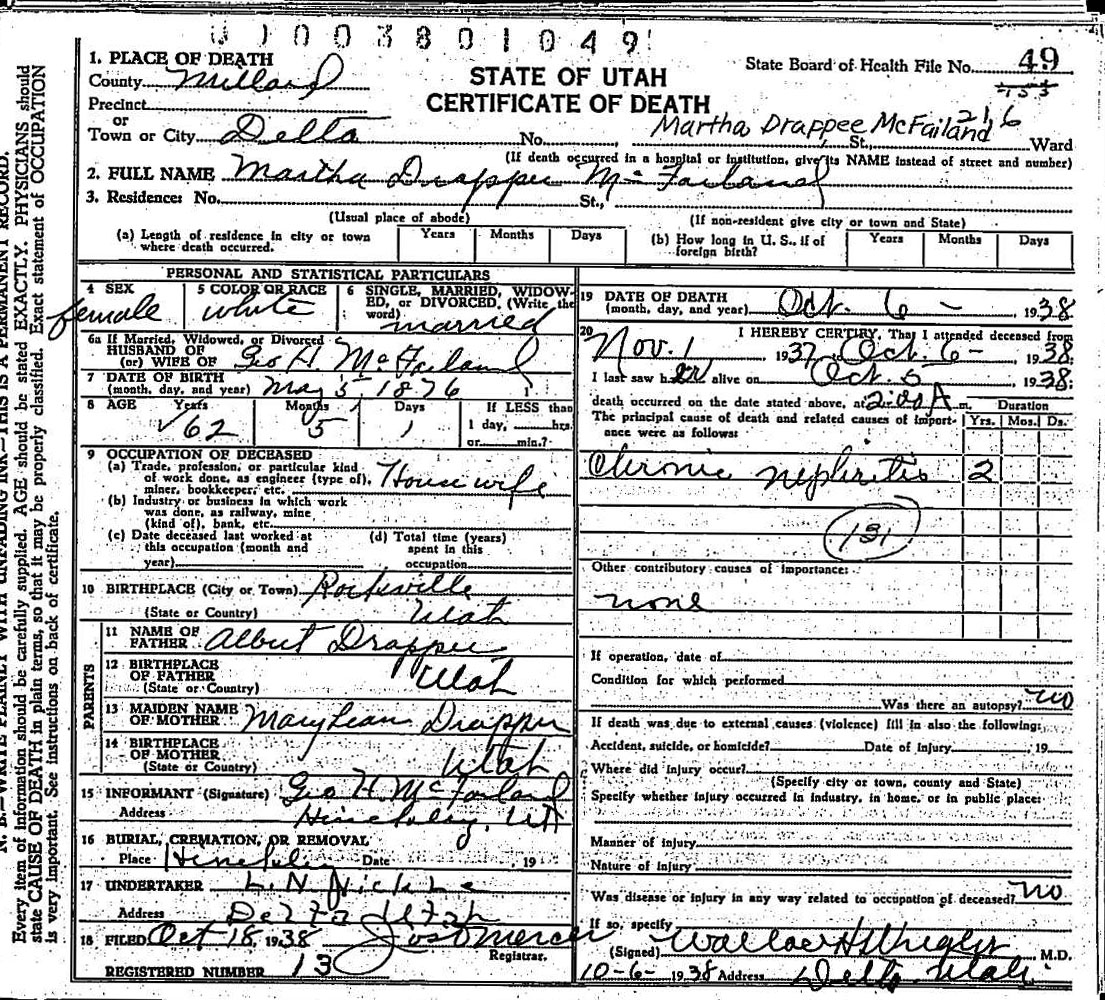 U 1 0 0 3 8 0 1 0 4 9
1. PLACE OF DEATH
County Millard
STATE OF UTAH
CERTIFICATE OF DEATH
State Board of Health File No. 49
153
216
Precinct
or
Town or City Delta No. St., Ward
Martha Drappee McFailand
(If death occurred in a hospital or institution, give its NAME instead of street and number)
2. FULL NAME Martha Drapper McFarland
3. Residence: No. St.,
(Usual place of abode) (If non-resident give city or town and State)
(a) Length of residence in city or town where death occurred. Years Months Days
(b) How long in U. S., if of foreign birth? Years Months Days
PERSONAL AND STATISTICAL PARTICULARS
4 SEX female
5 COLOR OR RACE white
6 SINGLE, MARRIED, WIDOWED, or DIVORCED. (Write the word) married
6a If Married, Widowed, or Divorced
HUSBAND OF
(or) WIFE OF Geo H McFarland
7 DATE OF BIRTH
(month, day, and year) May 5 1876
8 AGE Years 62 Months 5 Days 1 If LESS than 1 day, hrs. or min.?
9 OCCUPATION OF DECEASED
(a) Trade, profession, or particular kind
of work done, as engineer (type of),
miner, bookkeeper, etc. Housewife
(b) Industry or business in which work
was done, as railway, mine
(kind of), bank, etc.
(c) Date deceased last worked at
this occupation (month and
year)
(d) Total time (years)
spent in this
occupation
10 BIRTHPLACE (City or Town) Rockville
(State or Country) Utah
PARENTS
11 NAME OF
FATHER Albert Drapper
12 BIRTHPLACE
OF FATHER
(State or Country) Utah
13 MAIDEN NAME
OF MOTHER Mary Drapper
14 BIRTHPLACE
OF MOTHER
(State or Country) Utah
15 INFORMANT (Signature) Geo H McFarland
Address Hinckley, Ut
16 BURIAL, CREMATION, OR REMOVAL
Place Hinckley Date , 19
17 UNDERTAKER L. N.
Address Delta Utah
18 FILED Oct 18, 1938
Registrar.
REGISTERED NUMBER 13
19 DATE OF DEATH
(month, day, and year) Oct. 6 - , 1938
20 I HEREBY CERTIFY, That I attended deceased from
Nov. 1 1937 Oct. 6 - 1938
I last saw her alive on Oct. 5 1938;
death occurred on the date stated above, at 2:00 A m.
Duration
The principal cause of death and related causes of importance were as follows: Yrs. Mos. Ds.
Chronic nephritis 2
131
Other contributory causes of importance:
none
If operation, date of
Condition for which performed
Was there an autopsy? no
If death was due to external causes (violence) fill in also the following:
Accident, suicide, or homicide? Date of injury , 19
Where did injury occur?
(Specify city or town, county and State)
Specify whether injury occurred in industry, in home, or in public place:
Manner of injury
Nature of injury
Was disease or injury in any way related to occupation of deceased? no
If so, specify
(Signed) Wallace H M.D.
10-6- 1938 Address Delta Utah
N. B.—WRITE PLAINLY WITH UNFADING INK—THIS IS A PERMANENT RECORD.
Every item of information should be carefully supplied. AGE should be stated EXACTLY. PHYSICIANS should
state CAUSE OF DEATH in plain terms, so that it may be properly classified. Exact statement of OCCUPATION
is very important. See instructions on back of certificate.